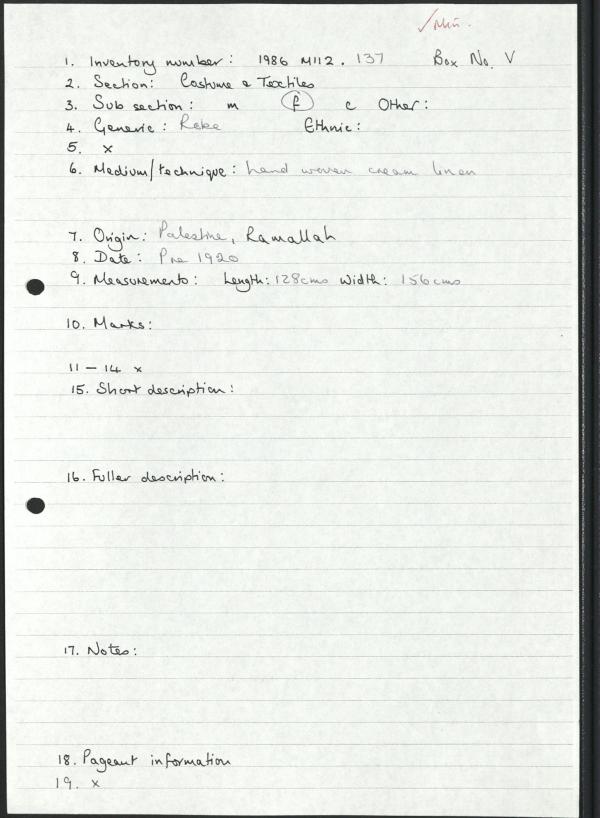 1. Inventory number: 1986 M112. 137 Box No. V
2. Section: Costume & Textiles
3. Sub section: m f c Other:
4. Generic: Robe Ethnic:
5. x
6. Medium/technique: hand woven cream linen
7. Origin: Palestine, Ramallah
8. Date: Pre 1920
9. Measurements: Length: 128cms Width: 156cms
10. Marks:
11 - 14 x
15. Short description:
16. Fuller description:
17. Notes:
18. Pageant information
19. x